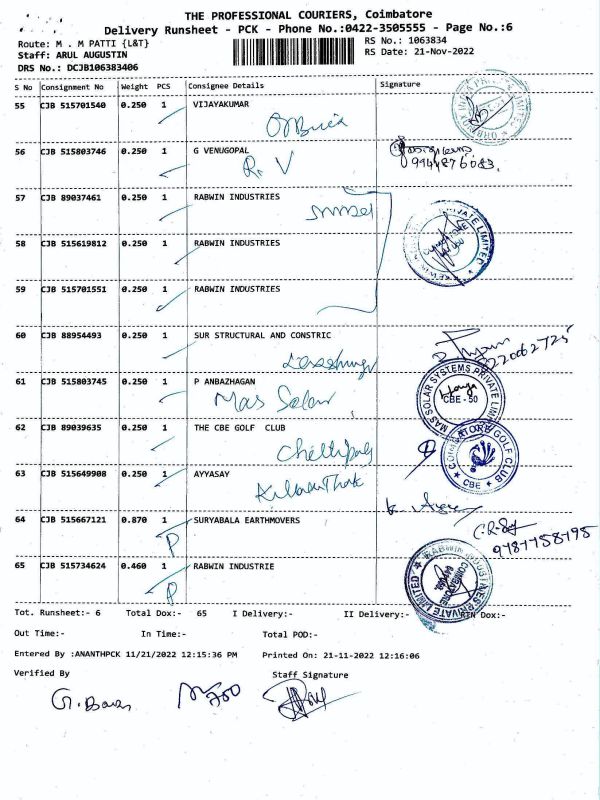 THE PROFESSIONAL COURIERS, Coimbatore
Delivery Runsheet - PCK - Phone No.:0422-3505555 - Page No.:6
Route: M . M PATTI {L&T}
RS No.: 1063834
Staff: ARUL AUGUSTIN
RS Date: 21-Nov-2022
DRS No.: DCJB106383406
S No Consignment No Weight PCS Consignee Details Signature
55 CJB 515701540 0.250 1 VIJAYAKUMAR
56 CJB 515803746 0.250 1 G VENUGOPAL
R. V
9944876083.
57 CJB 89037461 0.250 1 RABWIN INDUSTRIES
58 CJB 515619812 0.250 1 RABWIN INDUSTRIES
PRIVATE LIMITED
59 CJB 515701551 0.250 1 RABWIN INDUSTRIES
60 CJB 88954493 0.250 1 SUR STRUCTURAL AND CONSTRIC
61 CJB 515803745 0.250 1 P ANBAZHAGAN
Mas Solar
MAS SOLAR SYSTEMS PRIVATE LIMITED
CBE - 50
62 CJB 89039635 0.250 1 THE CBE GOLF CLUB
COIMBATORE GOLF CLUB
CBE
63 CJB 515649908 0.250 1 AYYASAY
64 CJB 515667121 0.870 1 SURYABALA EARTHMOVERS
P
65 CJB 515734624 0.460 1 RABWIN INDUSTRIE
P
RABWIN INDUSTRIES PRIVATE LIMITED
COIMBATORE
Tot. Runsheet:- 6 Total Dox:- 65 I Delivery:- II Delivery:- Dox:-
Out Time:- In Time:- Total POD:-
Entered By :ANANTHPCK 11/21/2022 12:15:36 PM Printed On: 21-11-2022 12:16:06
Verified By Staff Signature